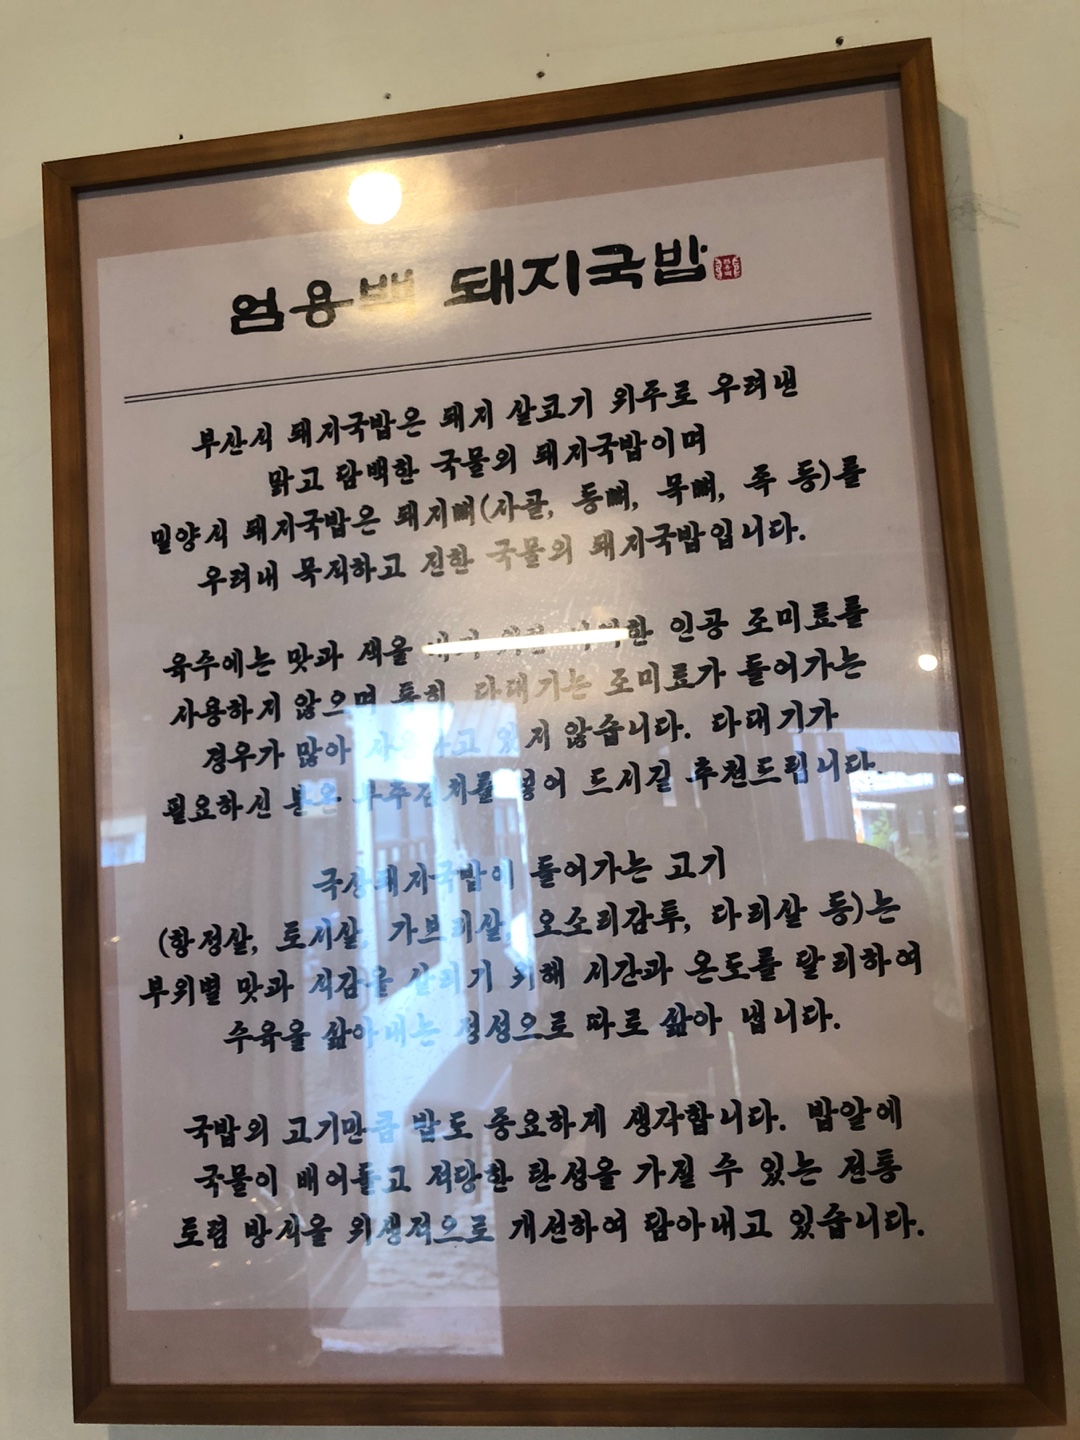 엄용백 돼지국밥
부산식 돼지국밥은 돼지 살코기 위주로 우려낸
맑고 담백한 국물의 돼지국밥이며
밀양식 돼지국밥은 돼지뼈(사골, 등뼈, 목뼈, 족 등)를
우려내 묵직하고 진한 국물의 돼지국밥입니다.
육수에는 맛과 색을 인공 조미료를
사용하지 않으며 특히 다대기는 조미료가 들어가는
경우가 많아 사용하고 있지 않습니다. 다대기가
필요하신 분은 부추김치를 넣어 드시길 추천드립니다.
국산돼지국밥에 들어가는 고기
(항정살, 토시살, 가브리살, 오소리감투, 다리살 등)는
부위별 맛과 식감을 살리기 위해 시간과 온도를 달리하여
수육을 삶아내는 정성으로 따로 삶아 냅니다.
국밥의 고기만큼 밥도 중요하게 생각합니다. 밥알에
국물이 배어들고 적당한 탄성을 가질 수 있는 전통
토렴 방식을 위생적으로 개선하여 담아내고 있습니다.